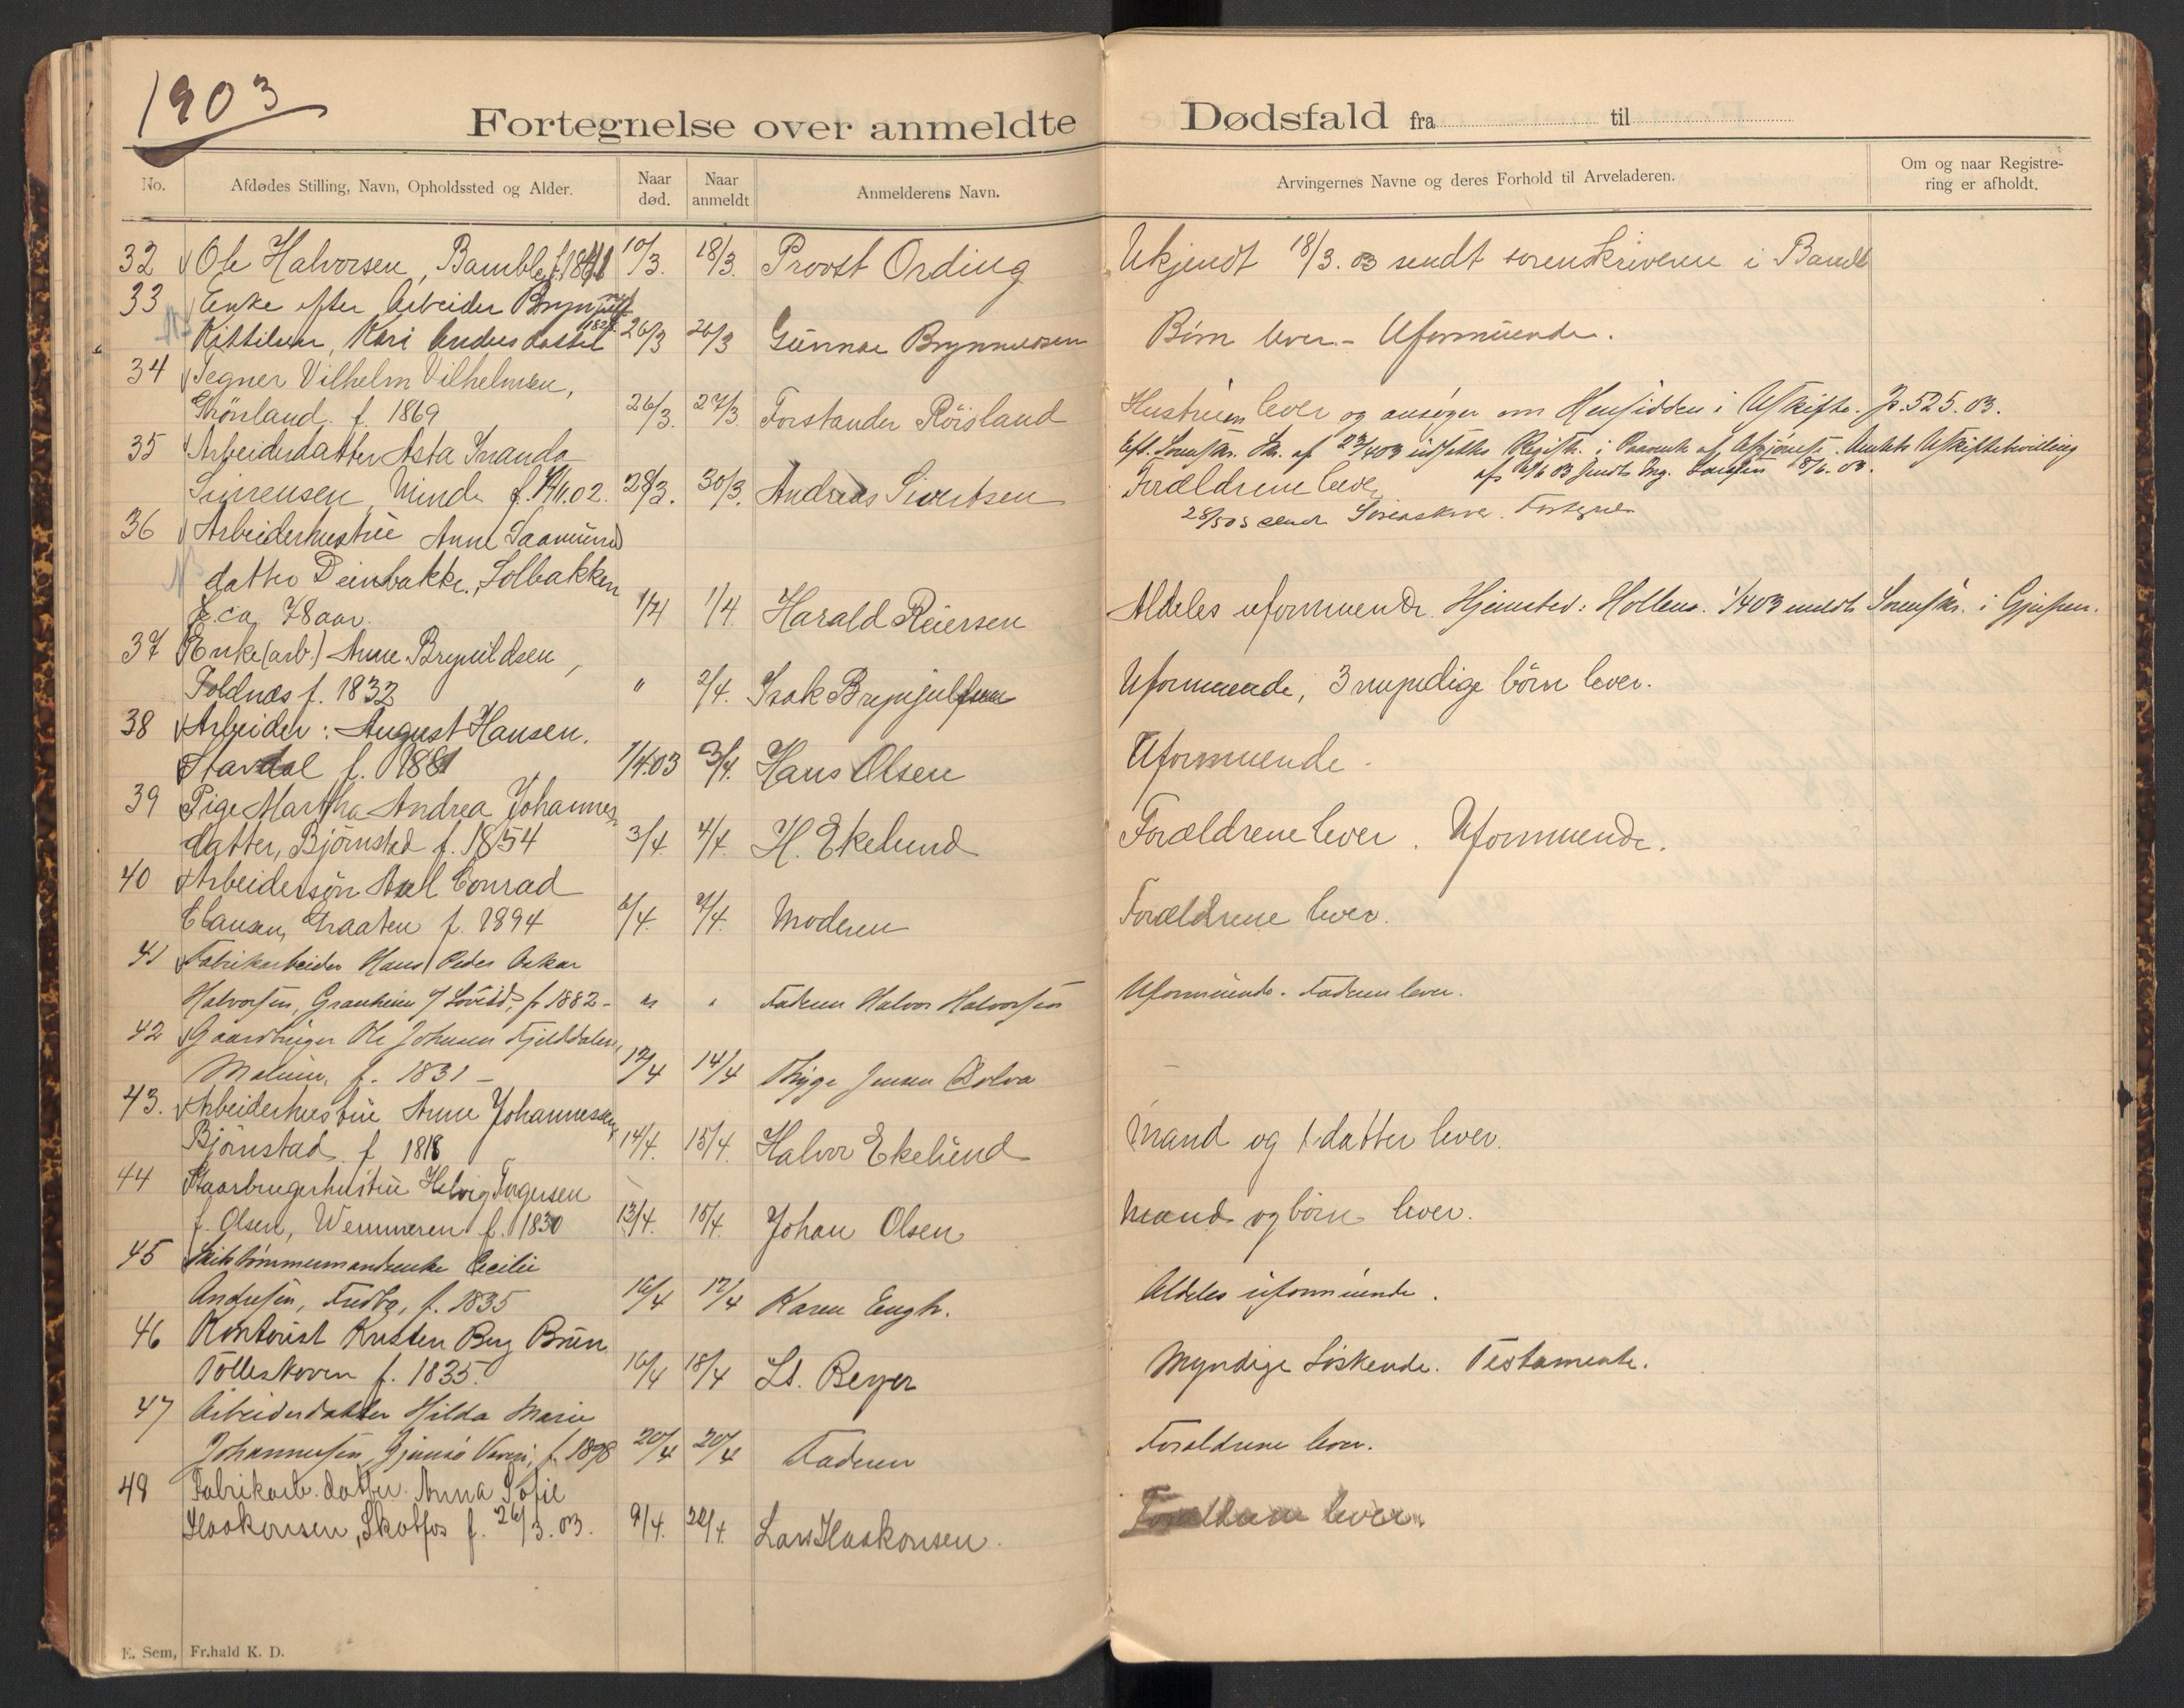 1903
Fortegnelse over anmeldte Dødsfald fra til
No. Afdødes Stilling, Navn, Opholdssted og Alder. Naar død. Naar anmeldt Anmelderens Navn. Arvingernes Navne og deres Forhold til Arveladeren. Om og naar Registrering er afholdt.
32 Ole Halvorsen, Bamble f. 1841 10/3. 18/3. Provst Ording Ukjendt 18/3.03 sendt sorenskriveren i Bamble
33 Enke efter Arbeider
Kittilsen, Kari Andersdatter 26/3 26/3 Gunnar Brynjulfsen Børn lever. - Uformuende.
34 Tegner Vilhelm Vilhelmsen,
Grönland. f. 1869 26/3. 27/3. Forstander Röisland Hustruen lever og ansøger om Hensidden i Uskifte. Jr. 525.03.
35 Arbeiderdatter Asta
Eft. Sorenskr. Skr. af
Sivertsen, Minde f. 02. 28/3. 30/3. Andreas Sivertsen Forældrene lever
36 Arbeiderhustru Anne Saamunds
datter Deinbakke, Solbakken
f. ca. 78 aar. 1/4 1/4. Harald Reiersen Aldeles uformuende. Hjemsted: Hollens. 1/4 03 meldt Sorenskr. i Gjerpen.
37 Enke (arb.) Anne Brynildsen,
Foldnæs f. 1832 " 2/4. Isak Brynjulfsen Uformuende, 3 myndige börn lever.
38 Arbeider: August Hansen.
Stavdal f. 1881 1/4.03 3/4. Hans Olsen Uformuende.
39 Pige Martha Andrea Johannes
datter, Björnstad f. 1854 3/4. 4/4. H. Ekelund Forældrene lever. Uformuende.
40 Arbeidersön Axel Conrad
Clausen, Graaten f. 1894 6/4. 7/4. Moderen Forældrene lever.
41 Fabrikarbeider Hans Peder Oskar
Halvorsen, Granheim f. 1882 - " " Faderen Halvor Halvorsen Uformuende. Faderen lever.
42 Gaardbruger Ole Johnsen Fjelddalen,
f. 1831 - 12/4 14/4 Thyge Jensen Bolva -
43. Arbeiderhustru Anne Johannessen,
Björnstad f. 1818 14/4. 15/4. Halvor Ekelund Mand og 1 datter lever.
44 Gaarbrugerhustru Helvig Torgersen
f. Olsen, Wemmeren f. 1830 13/4. 15/4. Johan Olsen Mand og börn lever.
45 Skibstömmermandsenke Cecilie
Andresen, Fredbo, f. 1835 16/4 17/4 Karen Engh. Aldeles uformuende.
46 Kontorist Kristen Berg Bruun
Tollerskoven f. 1835. 16/4 18/4 Lt. Beyer Myndige Söskende. Testamente.
47 Arbeiderdatter Hilda Marie
Johannessen, f. 1898 20/4 20/4 Faderen Forældrene lever.
48 Fabrikarb. datter Anna Sofie
Haakonsen, Skotfos f. 26/3.03. 9/4. 20/4. Lars Haakonsen. Forældrene lever.
E. Sem, Fr.hald K. D.